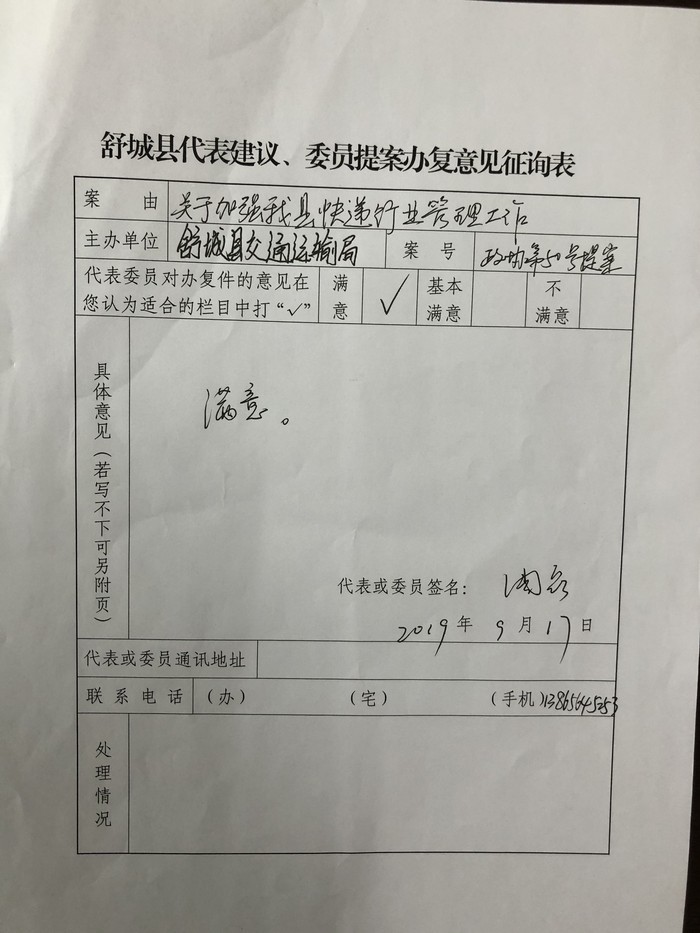 舒城县代表建议、委员提案办复意见征询表
案由 关于加强我县快递行业管理工作
主办单位 舒城县交通运输局 案号 政协第50号提案
代表委员对办复件的意见在您认为适合的栏目中打“√” 满意 √ 基本满意 不满意
具体意见（若写不下可另附页）
满意。
代表或委员签名：
2019年9月17日
代表或委员通讯地址
联系电话 （办） （宅） （手机）13865645253
处理情况